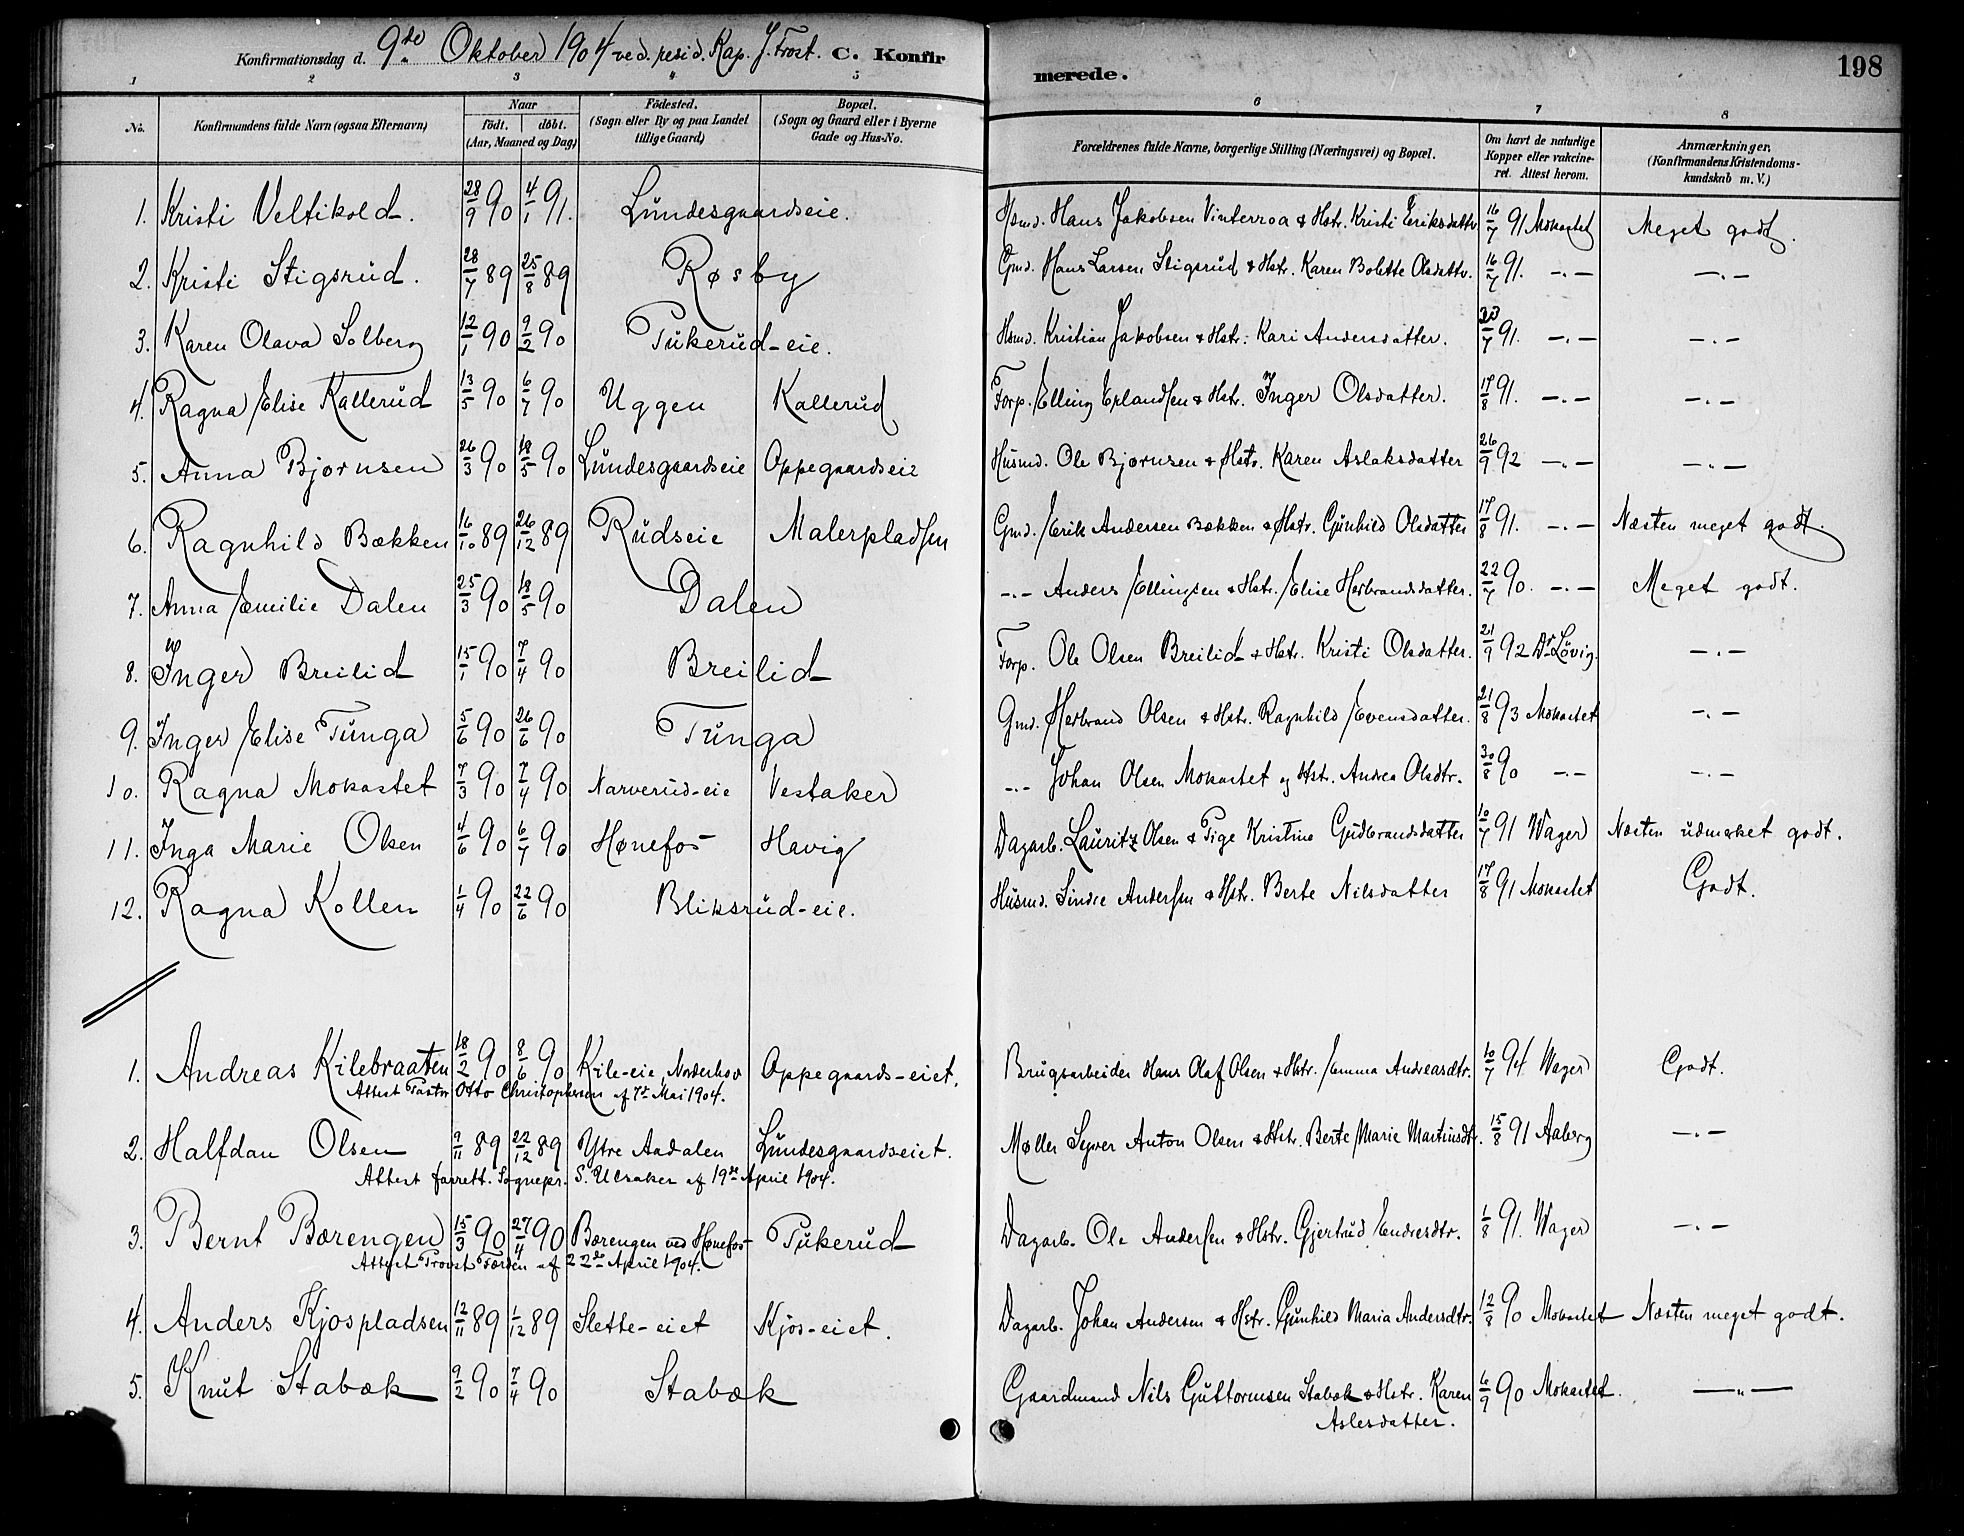 Konfirmationsdag d. 9de Oktober 1904 ved. resid. Kap. J. Frost. C. Konfirmerede. 198
1 2 3 4 5 6 7 8
No. Konfirmandens fulde Navn (ogsaa Efternavn) Naar født. døbt. (Aar, Maaned og Dag) Fødested. (Sogn eller By og paa Landet tillige Gaard) Bopæl. (Sogn og Gaard eller i Byerne Gade og Hus-No. Forældrenes fulde Navne, borgerlige Stilling (Næringsvei) og Bopæl. Om havt de naturlige Kopper eller vakcineret. Attest herom. Anmærkninger. (Konfirmandens Kristendomskundskab m. V.)
1. Kristi Veltikold. 28/9 90 4/1 91. Lundesgaardseie. Hsmd. Hans Jakobsen Vinterroa & Hstr. Kristi Eriksdatter 16/7 91 Mokastet Meget godt.
2. Kristi Stigsrud. 28/7 89 25/8 89 Røsby Gmd. Hans Larsen Stigsrud & Hstr. Karen Bolette Olsdattr. 16/7 91. -.- -.-
3. Karen Olava Solberg 12/1 90 9/2 90 Tukerud-eie. Hsmd. Kristian Jakobsen & Hstr. Kari Andersdatter. 7 91. -.- -.-
4. Ragna Elise Kallerud 13/5 90 6/7 90 Uggen Kallerud Forp. Elling Erlandsen & Hstr. Inger Olsdatter. 17/8 91. -.- -.-
5. Anna Bjørnsen 26/3 90 18/5 90 Lundesgaardseie Oppegaardseie Husmd. Ole Bjørnsen & Hstr. Karen Aslaksdatter 26/9 92 -.- -.-
6. Ragnhild Bækken 16/10 89 26/12 89 Rudseie Malerpladsen Gmd. Erik Andersen Bækken & Hstr. Gunhild Olsdatter 17/8 91. -.- Næsten meget godt.
7. Anna Emilie Dalen 25/3 90 18/5 90 Dalen -.- Anders Ellingsen & Hstr. Elise Herbrandsdatter. 22/7 90. -.- Meget godt.
8. Inger Breilid 15/1 90 7/4 90 Breilid Forp. Ole Olsen Breilid & Hstr. Kristi Olsdatter. 21/9 92 Dr. Lövig. -.-
9. Inger Elise Tunga 5/6 90 26/6 90 Tunga Gmd. Herbrand Olsen & Hstr. Ragnhild Evensdatter. 21/8 93 Mokastet -.-
10. Ragna Mokastet 7/3 90 7/4 90 Narverud-eie Vestaker -.- Johan Olsen Mokastet og Hstr. Andrea Olsdtr. 30/8 90 -.- -.-
11. Inga Marie Olsen 4/6 90 6/7 90 Hønefos Havig Dagarb. Lauritz Olsen & Pige Kristine Gudbrandsdatter 10/7 91 Wager Næsten udmærket godt.
12. Ragna Kollen 1/4 90 22/6 90 Bliksrud-eie. Husmd. Sindre Andersen & Hstr. Berte Nilsdatter 17/8 91 Mokastet Godt.
1. Andreas Kilebraaten 18/2 90 8/6 90 Kile-eie, Norderhov Oppegaards-eiet. Brugsarbeider Hans Olaf Olsen & Hstr. Emma Andreasdtr. 10/7 94 Wager Godt.
Attest Pastor Otto Christophersen af 7de Mai 1904.
2. Halfdan Olsen 9/11 89 22/12 89 Ytre Aadalen Lundesgaardseiet. Møller Syver Anton Olsen & Hstr. Berte Marie Martinsdtr. 15/8 91 Aaberg -.-
Attest forrett. Sognepr. S. Ulsaker af 19de April 1904.
3. Bernt Bærengen 15/3 90 27/4 90 Bærengen ved Hønefos Tukerud Dagarb. Ole Andersen & Hstr. Gjertrud Endresdtr. 1/8 91. Wager -.-
Attest Provst Færden af 22de April 1904.
4. Anders Kjospladsen 12/11 89 1/12 89 Slette-eiet Kjos-eiet. Dagarb. Johan Andersen & Hstr. Gunhild Maria Andersdtr. 12/8 90 Mokastet Næsten meget godt.
5. Knut Stabæk 9/2 90 7/4 90 Stabæk Gaardmand Nils Guttormsen Stabæk & Hstr. Karen 6/9 90 Mokastet. -"-
Aslesdatter.